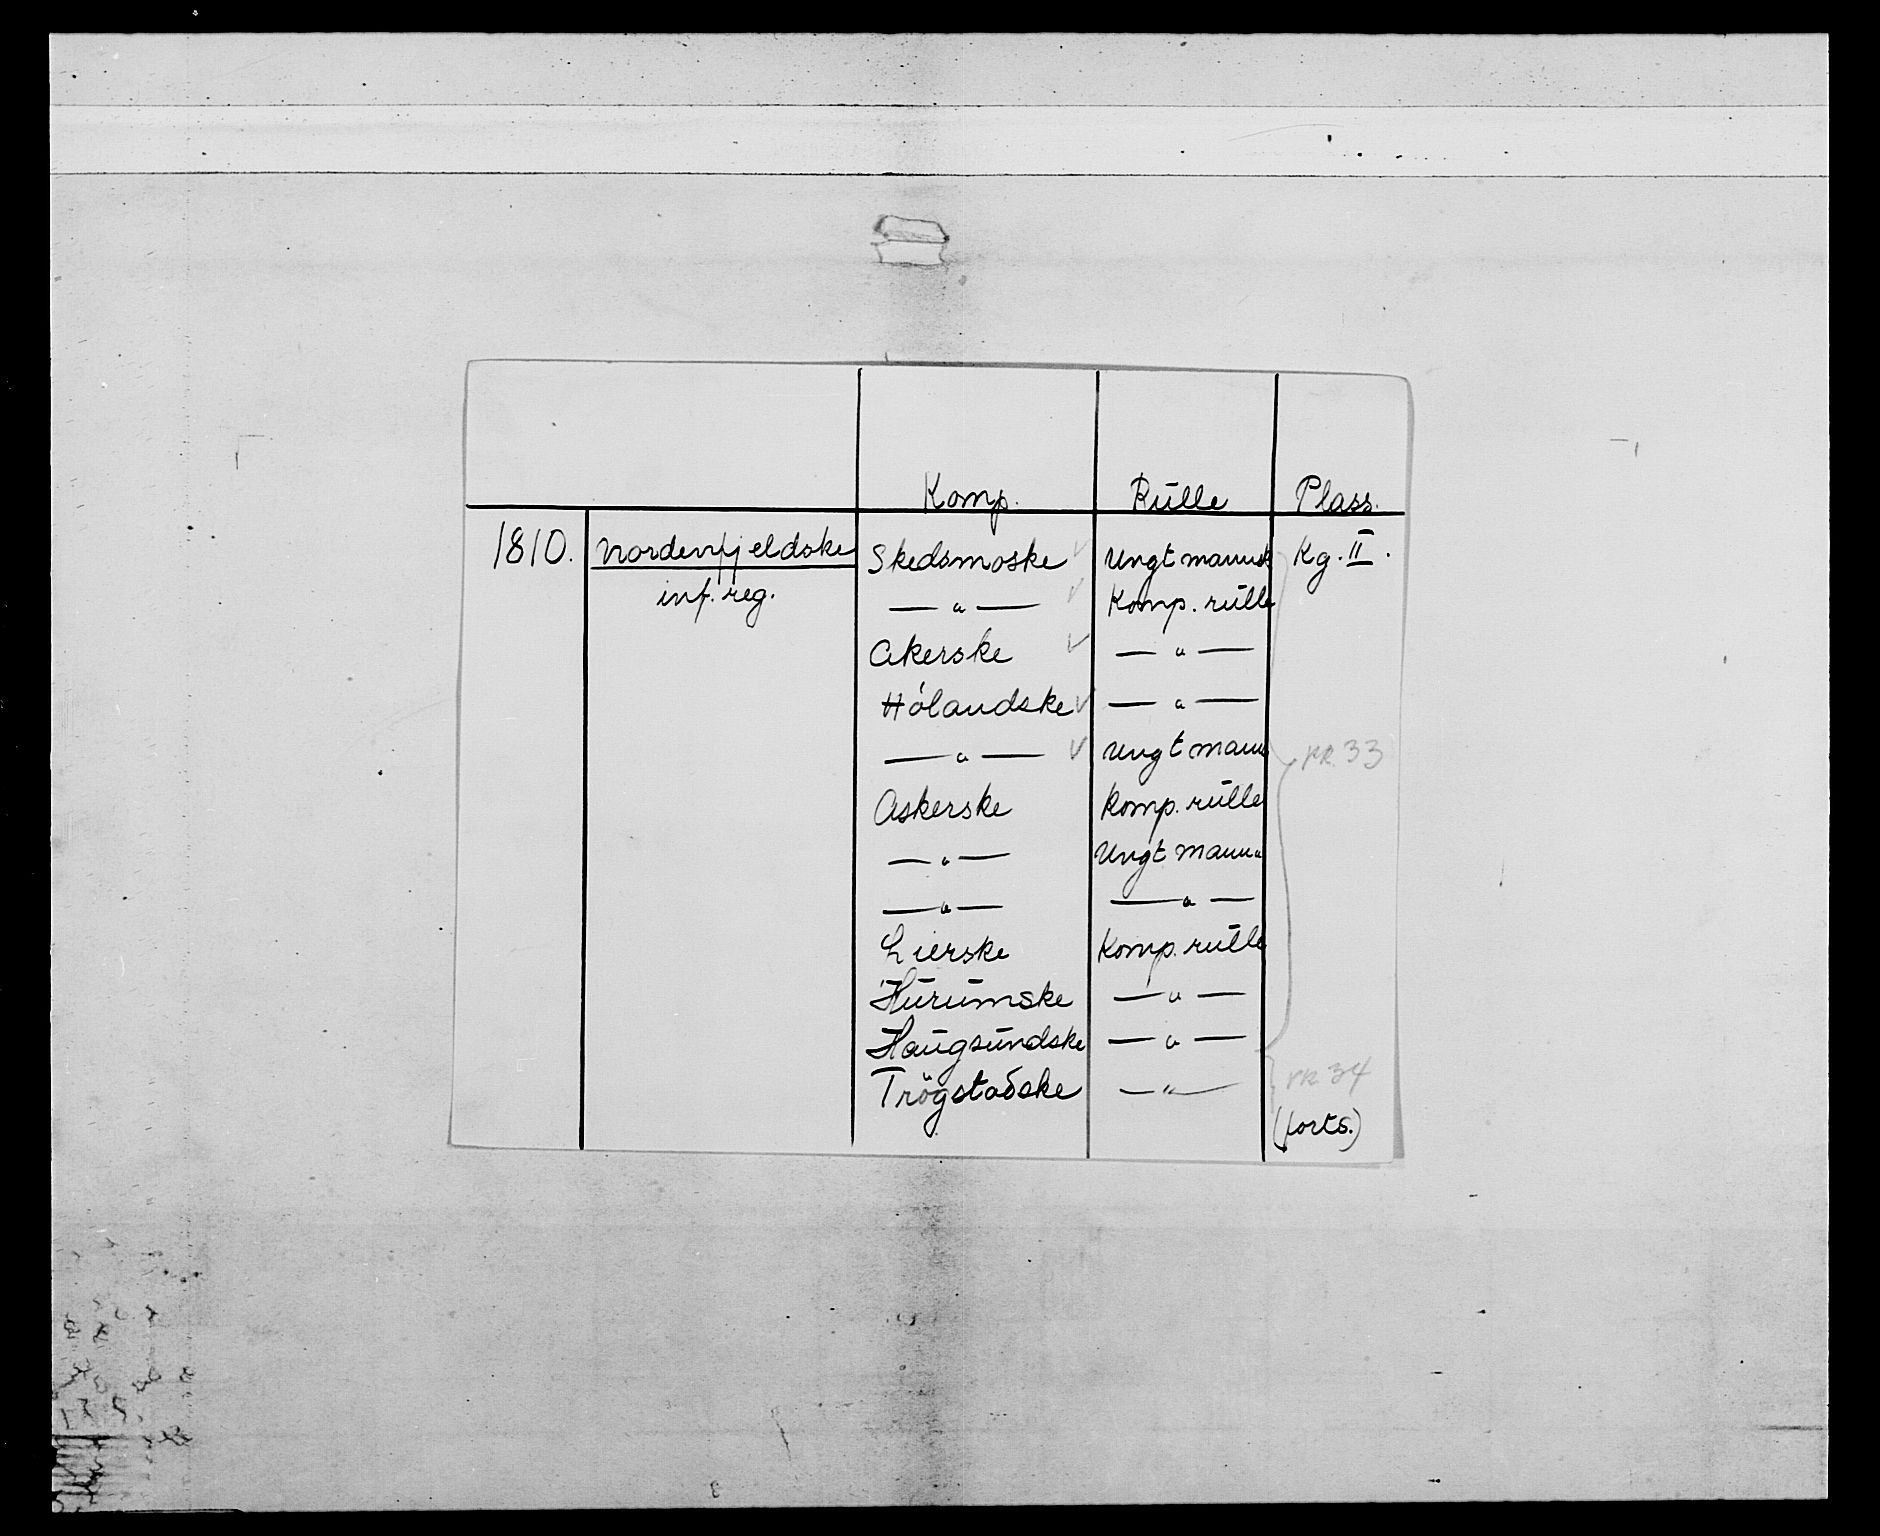 Komp. Rūlle Plass.
1810. Nordenfjeldske Skedsmoske ✓ Ungt mansk Kg. II.
inf. reg. — " — ✓ Komp. rūlle
Akerske ✓ — " —
Hólandske ✓ — " —
— " — ✓ Ungt mann
nr. 33
Askerske Komp. rūlle
— " — Ungt mann
— " — — " —
Lierske Komp. rūlle
Hūrūmske — " —
Haūgsūndske — " —
Trögstadske — " — nr. 34
(forts.)